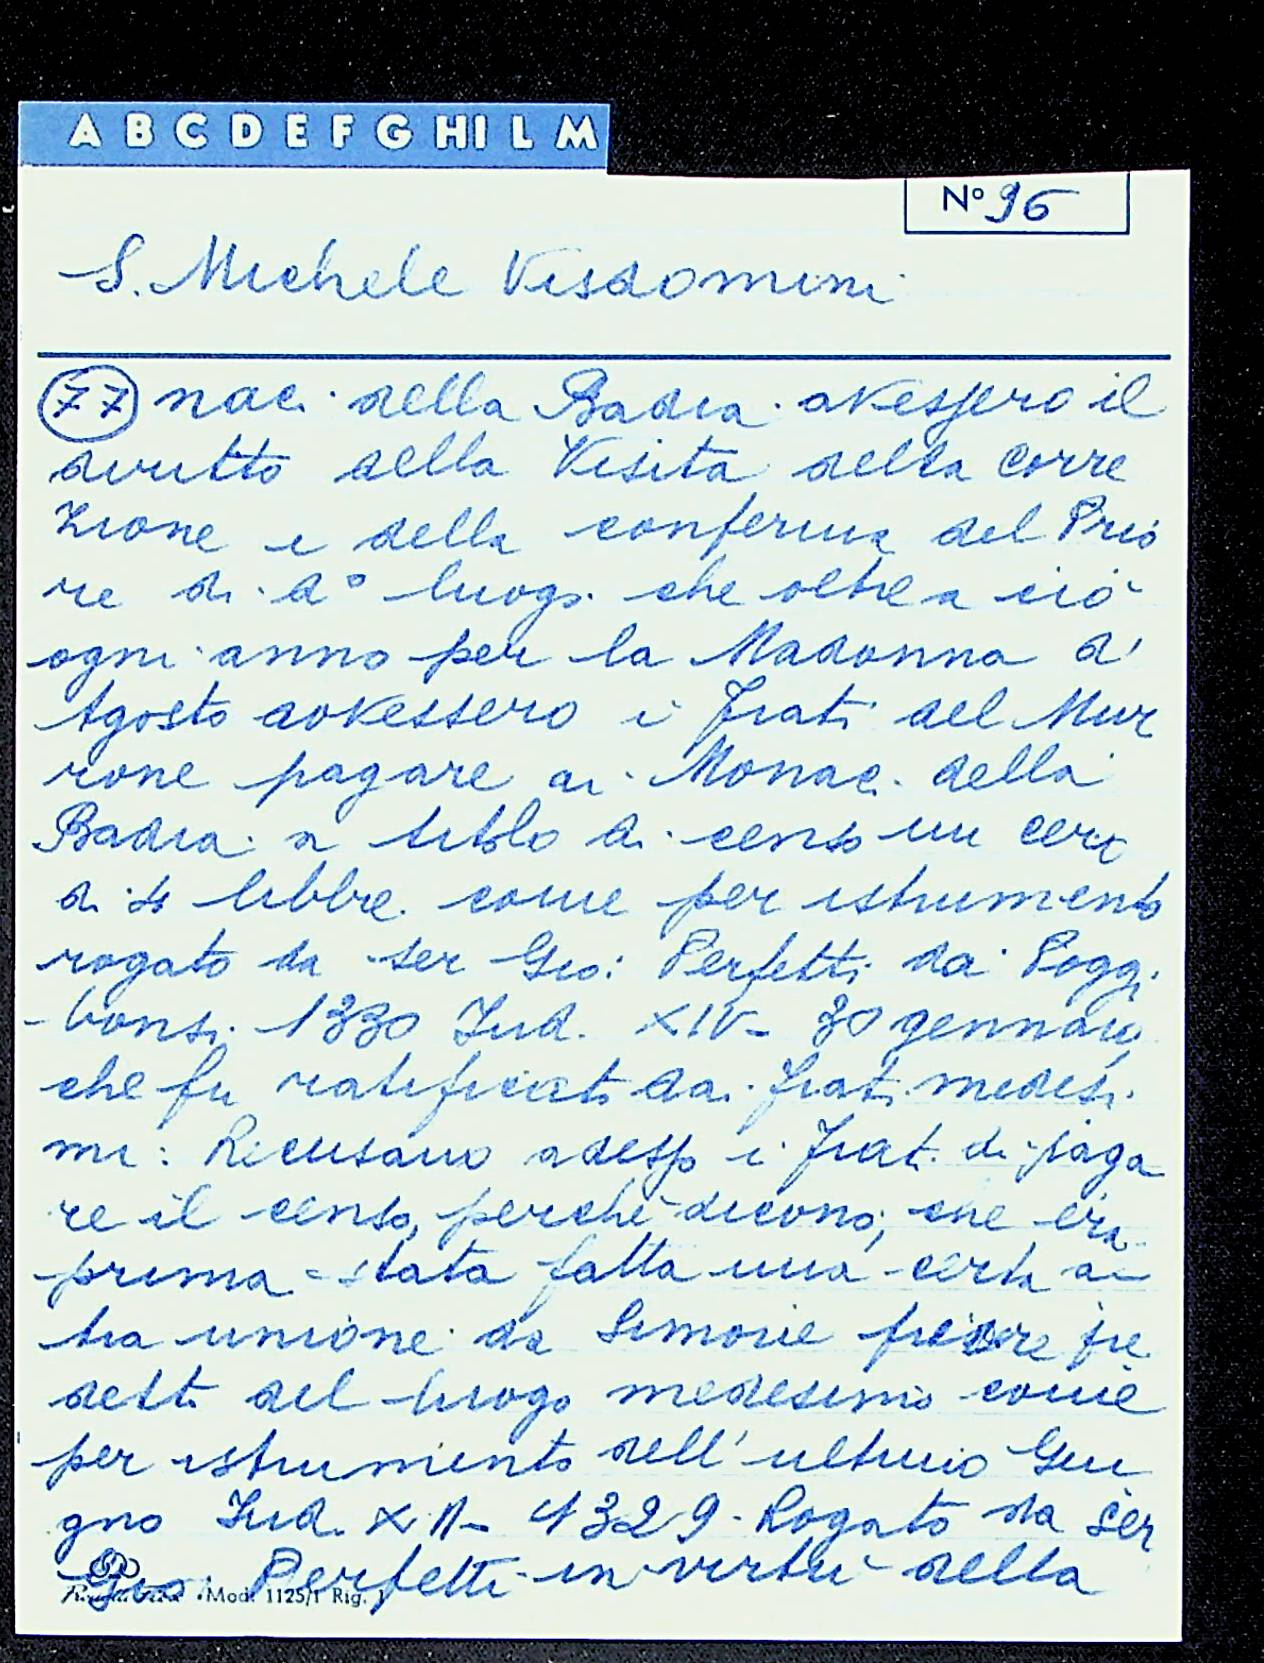 A B C D E F G H I L M
Nº 96
S. Michele Visdomini
77 nac. della Badia avessero il
diritto della Visita della corre
zione e della conferma del Prio
re di dº luogo. che oltre a ciò
ogni anno per la Madonna d'
Agosto dovessero i frati del Mur
rone pagare ai Monac. della
Badia a titolo di censo un cero
di 4 libbre. come per istrumento
rogato da ser Gio: Perfetti da Poggi
-bonsi. 1330 Ind. XIV- 30 gennaio
che fu ratificato dai frati medesi
mi: Ricusano adesso i frati di paga
re il censo, perchè dicono, che era
prima stata fatta una certa al
tra unione da Simone priore pre
detto del luogo medesimo come
per istrumento dell' ultimo Giu
gno Ind. XII- 1329. Rogato da Ser
Gio: Perfetti in virtù della
Mod. 1125/1 Rig.